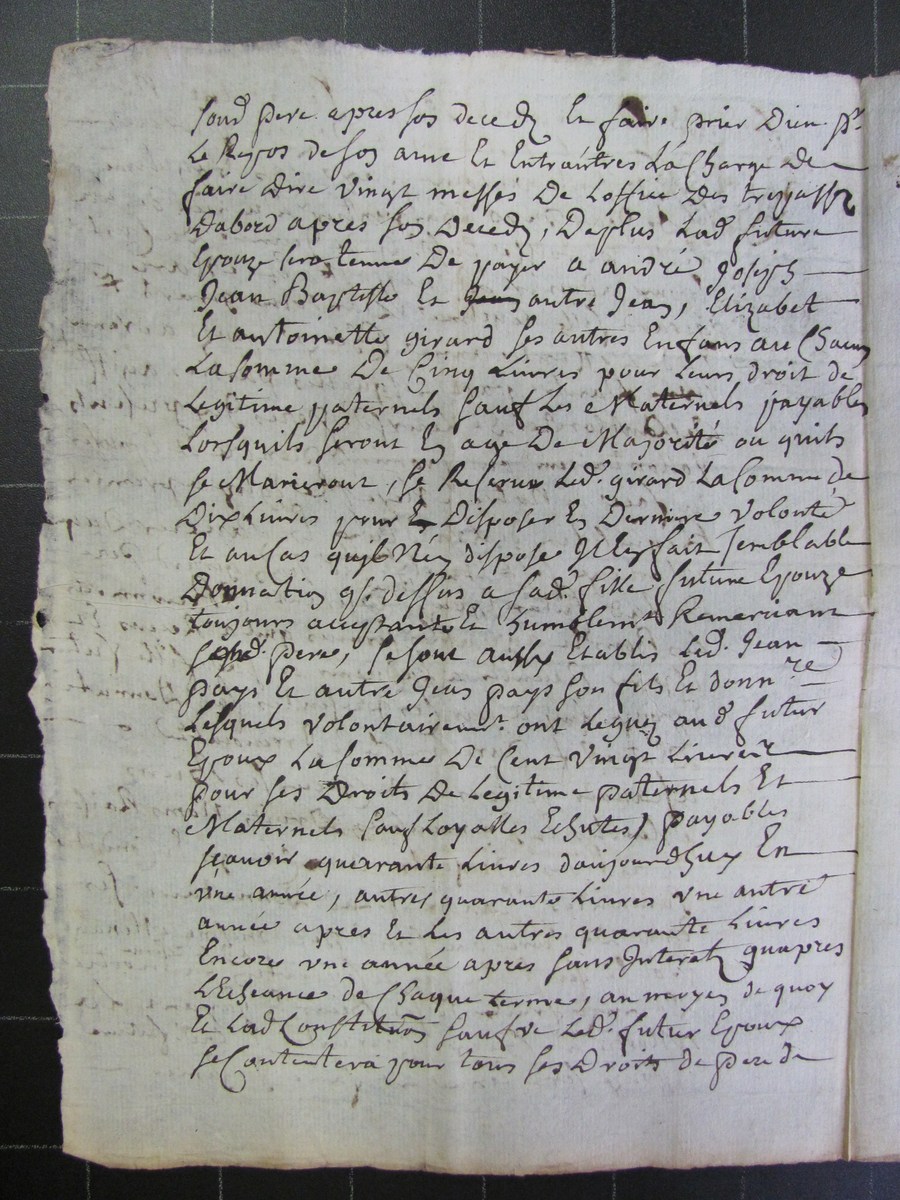 sond pere apres son deced Et faire prier Dieu pr
Le Repos de son ame Et Entrautres La Charge de
faire dire vingt messes De Loffice Des trepasses
Dabord apres son Deced, Deplus Lad future
Epouze sera tenue De payer a andré Joseph
Jean Baptiste Et autre Jean, Elizabet
Et antoinette girard ses autres Enfans a Chacun
La somme De Cinq Livres pour Leurs droit de
Legitime paternels sauf Les Maternels payables
Lorsquils seront En age De Majorité ou quils
se Marieront, se Reserve Led. girard La Somme de
Dix Livres pour En Disposer En Derniere volonté
Et au Cas quil Nen dispose Il En fait semblable
Donnation q. dessus a sad. fille future Epouze
toujours acceptante Et humblemt Remerciant
sond. pere, se sont aussy Etablis Led. Jean
pays Et autre Jean pays son fils Et donnre
Lesquels volontairemt. ont Legué aud futur
Epoux La somme De Cent vingt Livres
pour ses Droits De Legitime paternels Et
Maternels (sauf Loyalles Echutes) payables
scavoir quarante Livres daujourdhuy En
une année, autres quarante Livres une autre
année apres Et Les autres quarante Livres
Encore une année apres sans Interets quapres
LEcheance de Chaque terme, au moyen de quoy
Et Lad Constituon sauf Led. futur Epoux
se Contentera pour tous ses Droits de pere de